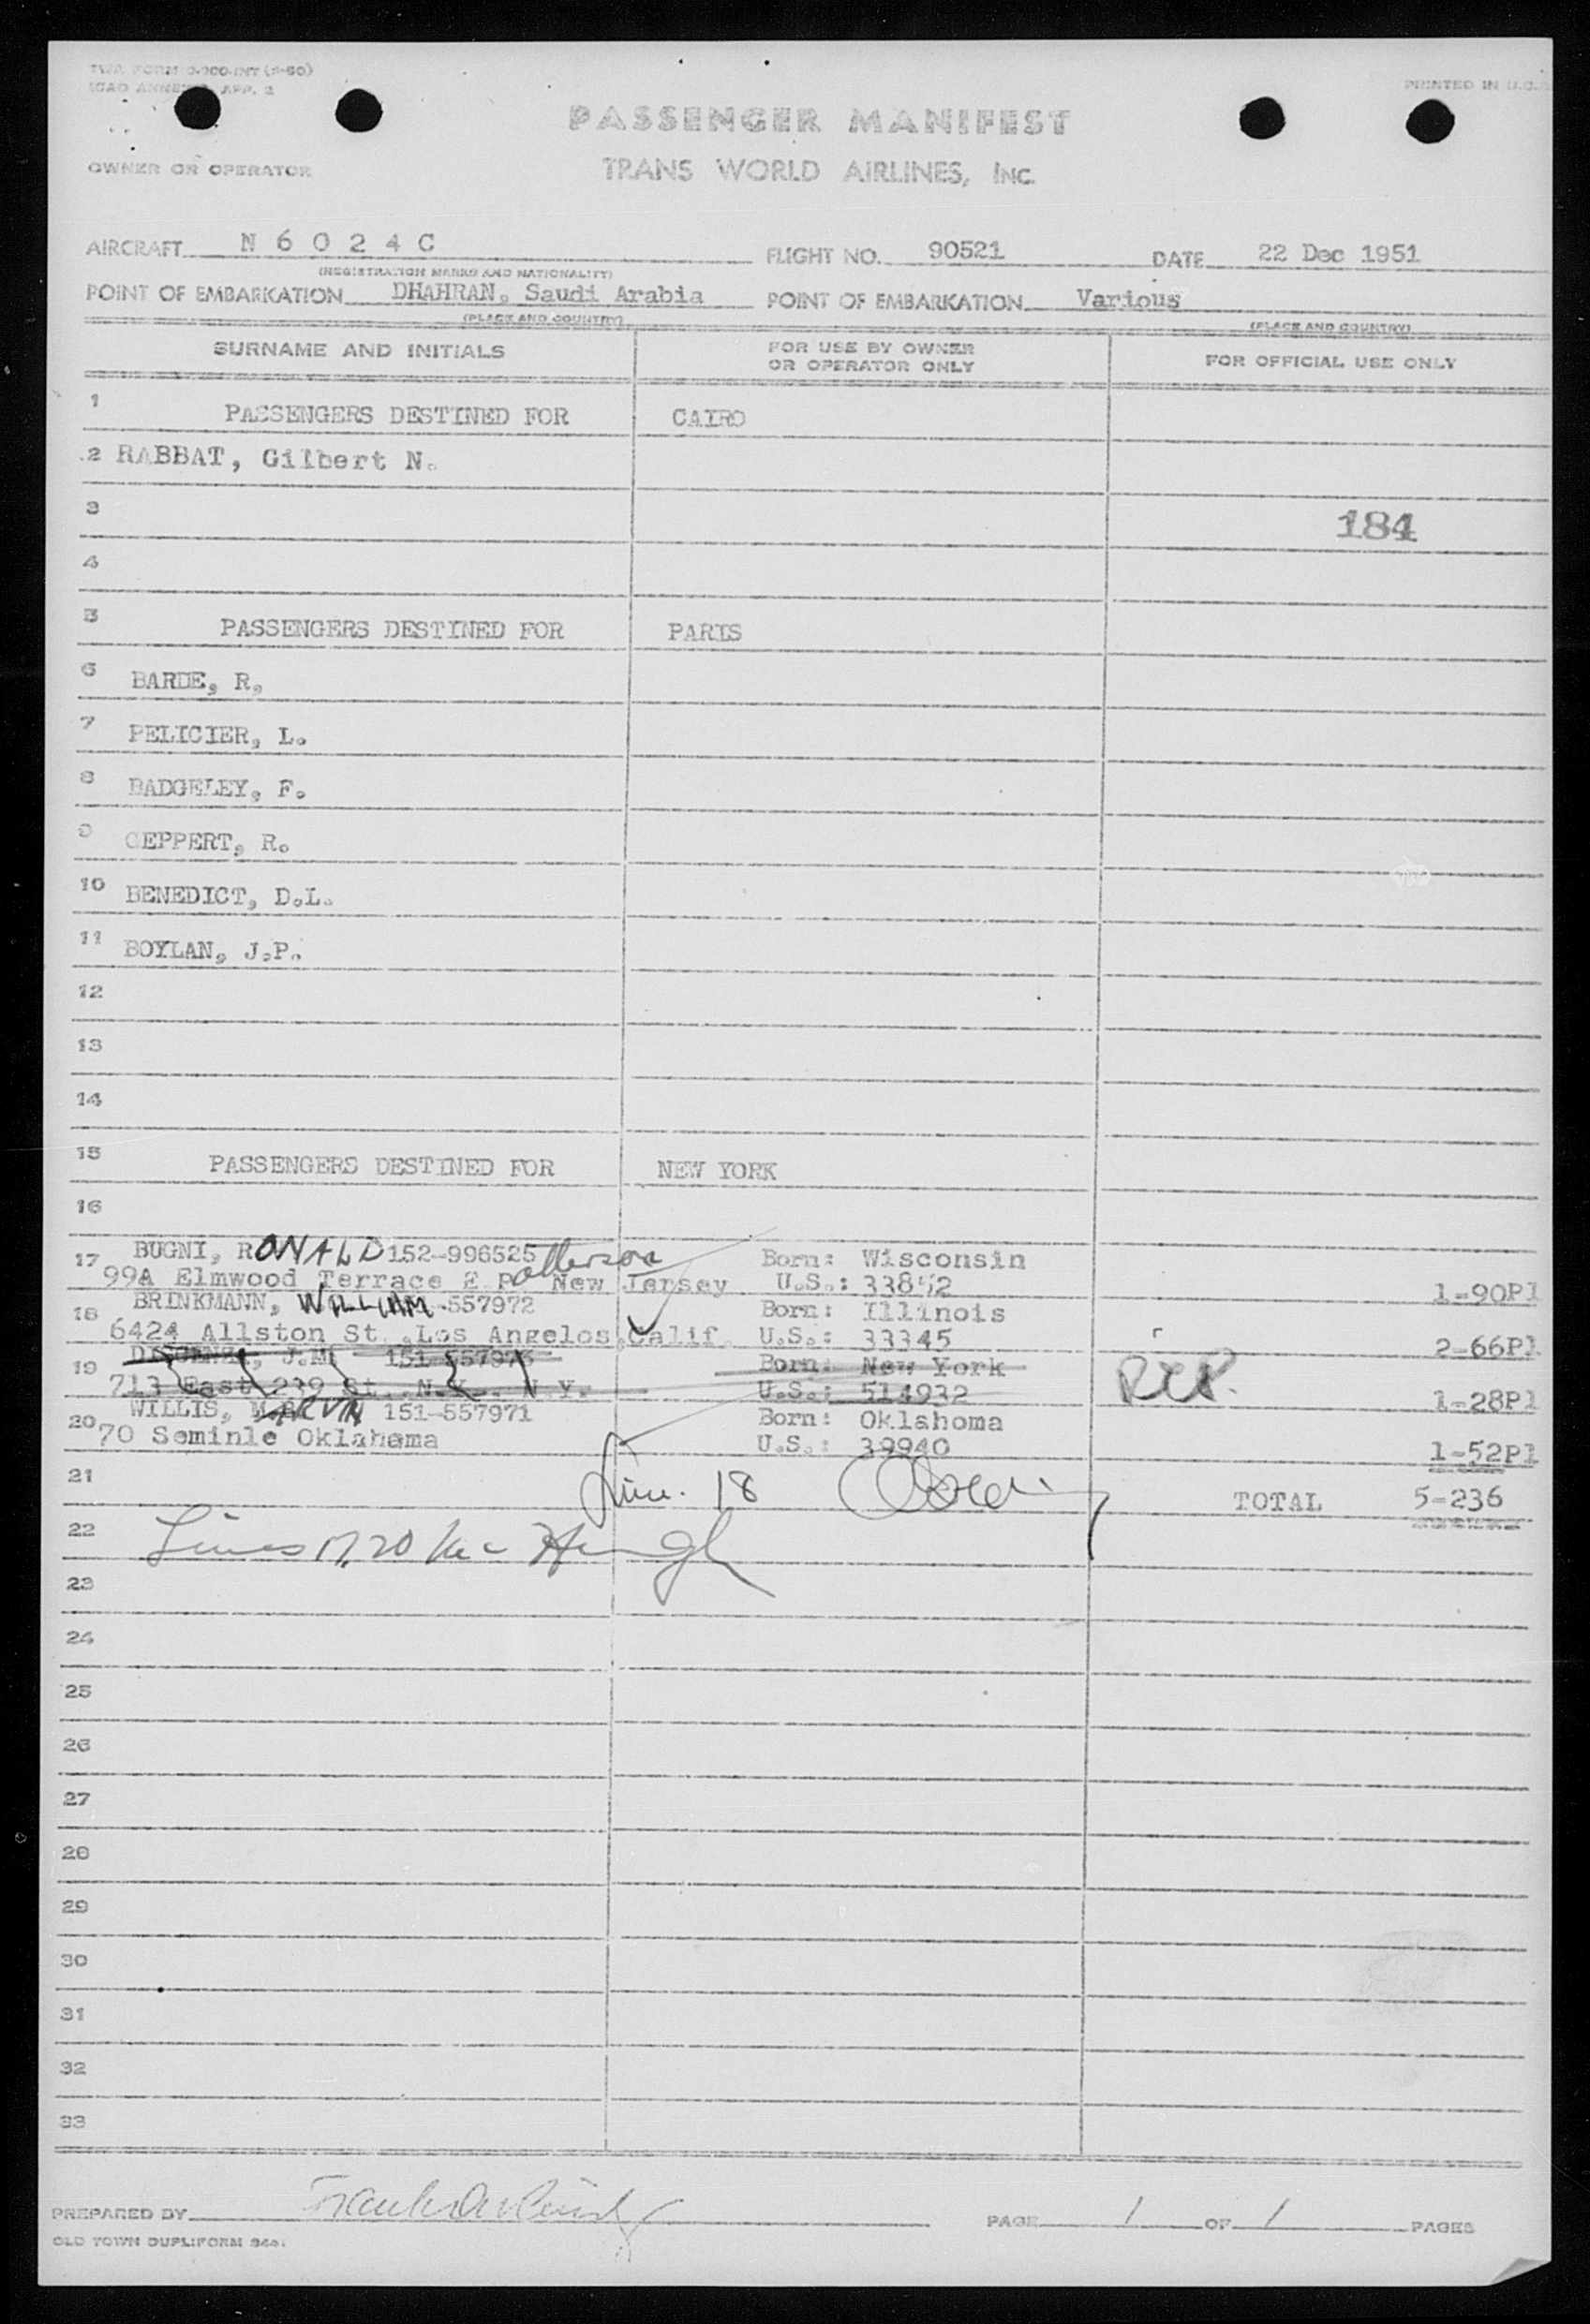 TWA FORM
ICAO ANNEX APP. 2
PRINTED IN U.S.
PASSENGER MANIFEST
OWNER OR OPERATOR
TRANS WORLD AIRLINES, INC.
AIRCRAFT N 6 0 2 4 C FLIGHT NO. 90521 DATE 22 Dec 1951
(REGISTRATION MARKS AND NATIONALITY)
POINT OF EMBARKATION DHAHRAN, Saudi Arabia POINT OF EMBARKATION Various
(PLACE AND COUNTRY) (PLACE AND COUNTRY)
SURNAME AND INITIALS FOR USE BY OWNER OR OPERATOR ONLY FOR OFFICIAL USE ONLY
1 PASSENGERS DESTINED FOR CAIRO
2 RABBAT, Gilbert N.
3 184
4
5 PASSENGERS DESTINED FOR PARIS
6 BARDE, R.
7 PELICIER, L.
8 BADGELEY, F.
9 GEPPERT, R.
10 BENEDICT, D.L.
11 BOYLAN, J.P.
12
13
14
15 PASSENGERS DESTINED FOR NEW YORK
16
17 BUGNI, RONALD 152-996525 Born: Wisconsin
99A Elmwood Terrace E Patterson New Jersey U.S.: 33852 1-90Pl
18 BRINKMANN, WILLIAM -557972 Born: Illinois
6424 Allston St. Los Angelos, Calif. U.S.: 33345 2-66Pl
19 J.M. Born: New York
713 East 239 St. N.Y. N.Y. U.S.: 514932 1-28Pl
20 WILLIS, MARVIN 151-557971 Born: Oklahoma
70 Seminle Oklahama U.S.: 39940 1-52Pl
21 Line. 18 TOTAL 5-236
22 Lines 17, 20
23
24
25
26
27
28
29
30
31
32
33
PREPARED BY PAGE 1 OF 1 PAGES
OLD TOWN DUPLIFORM